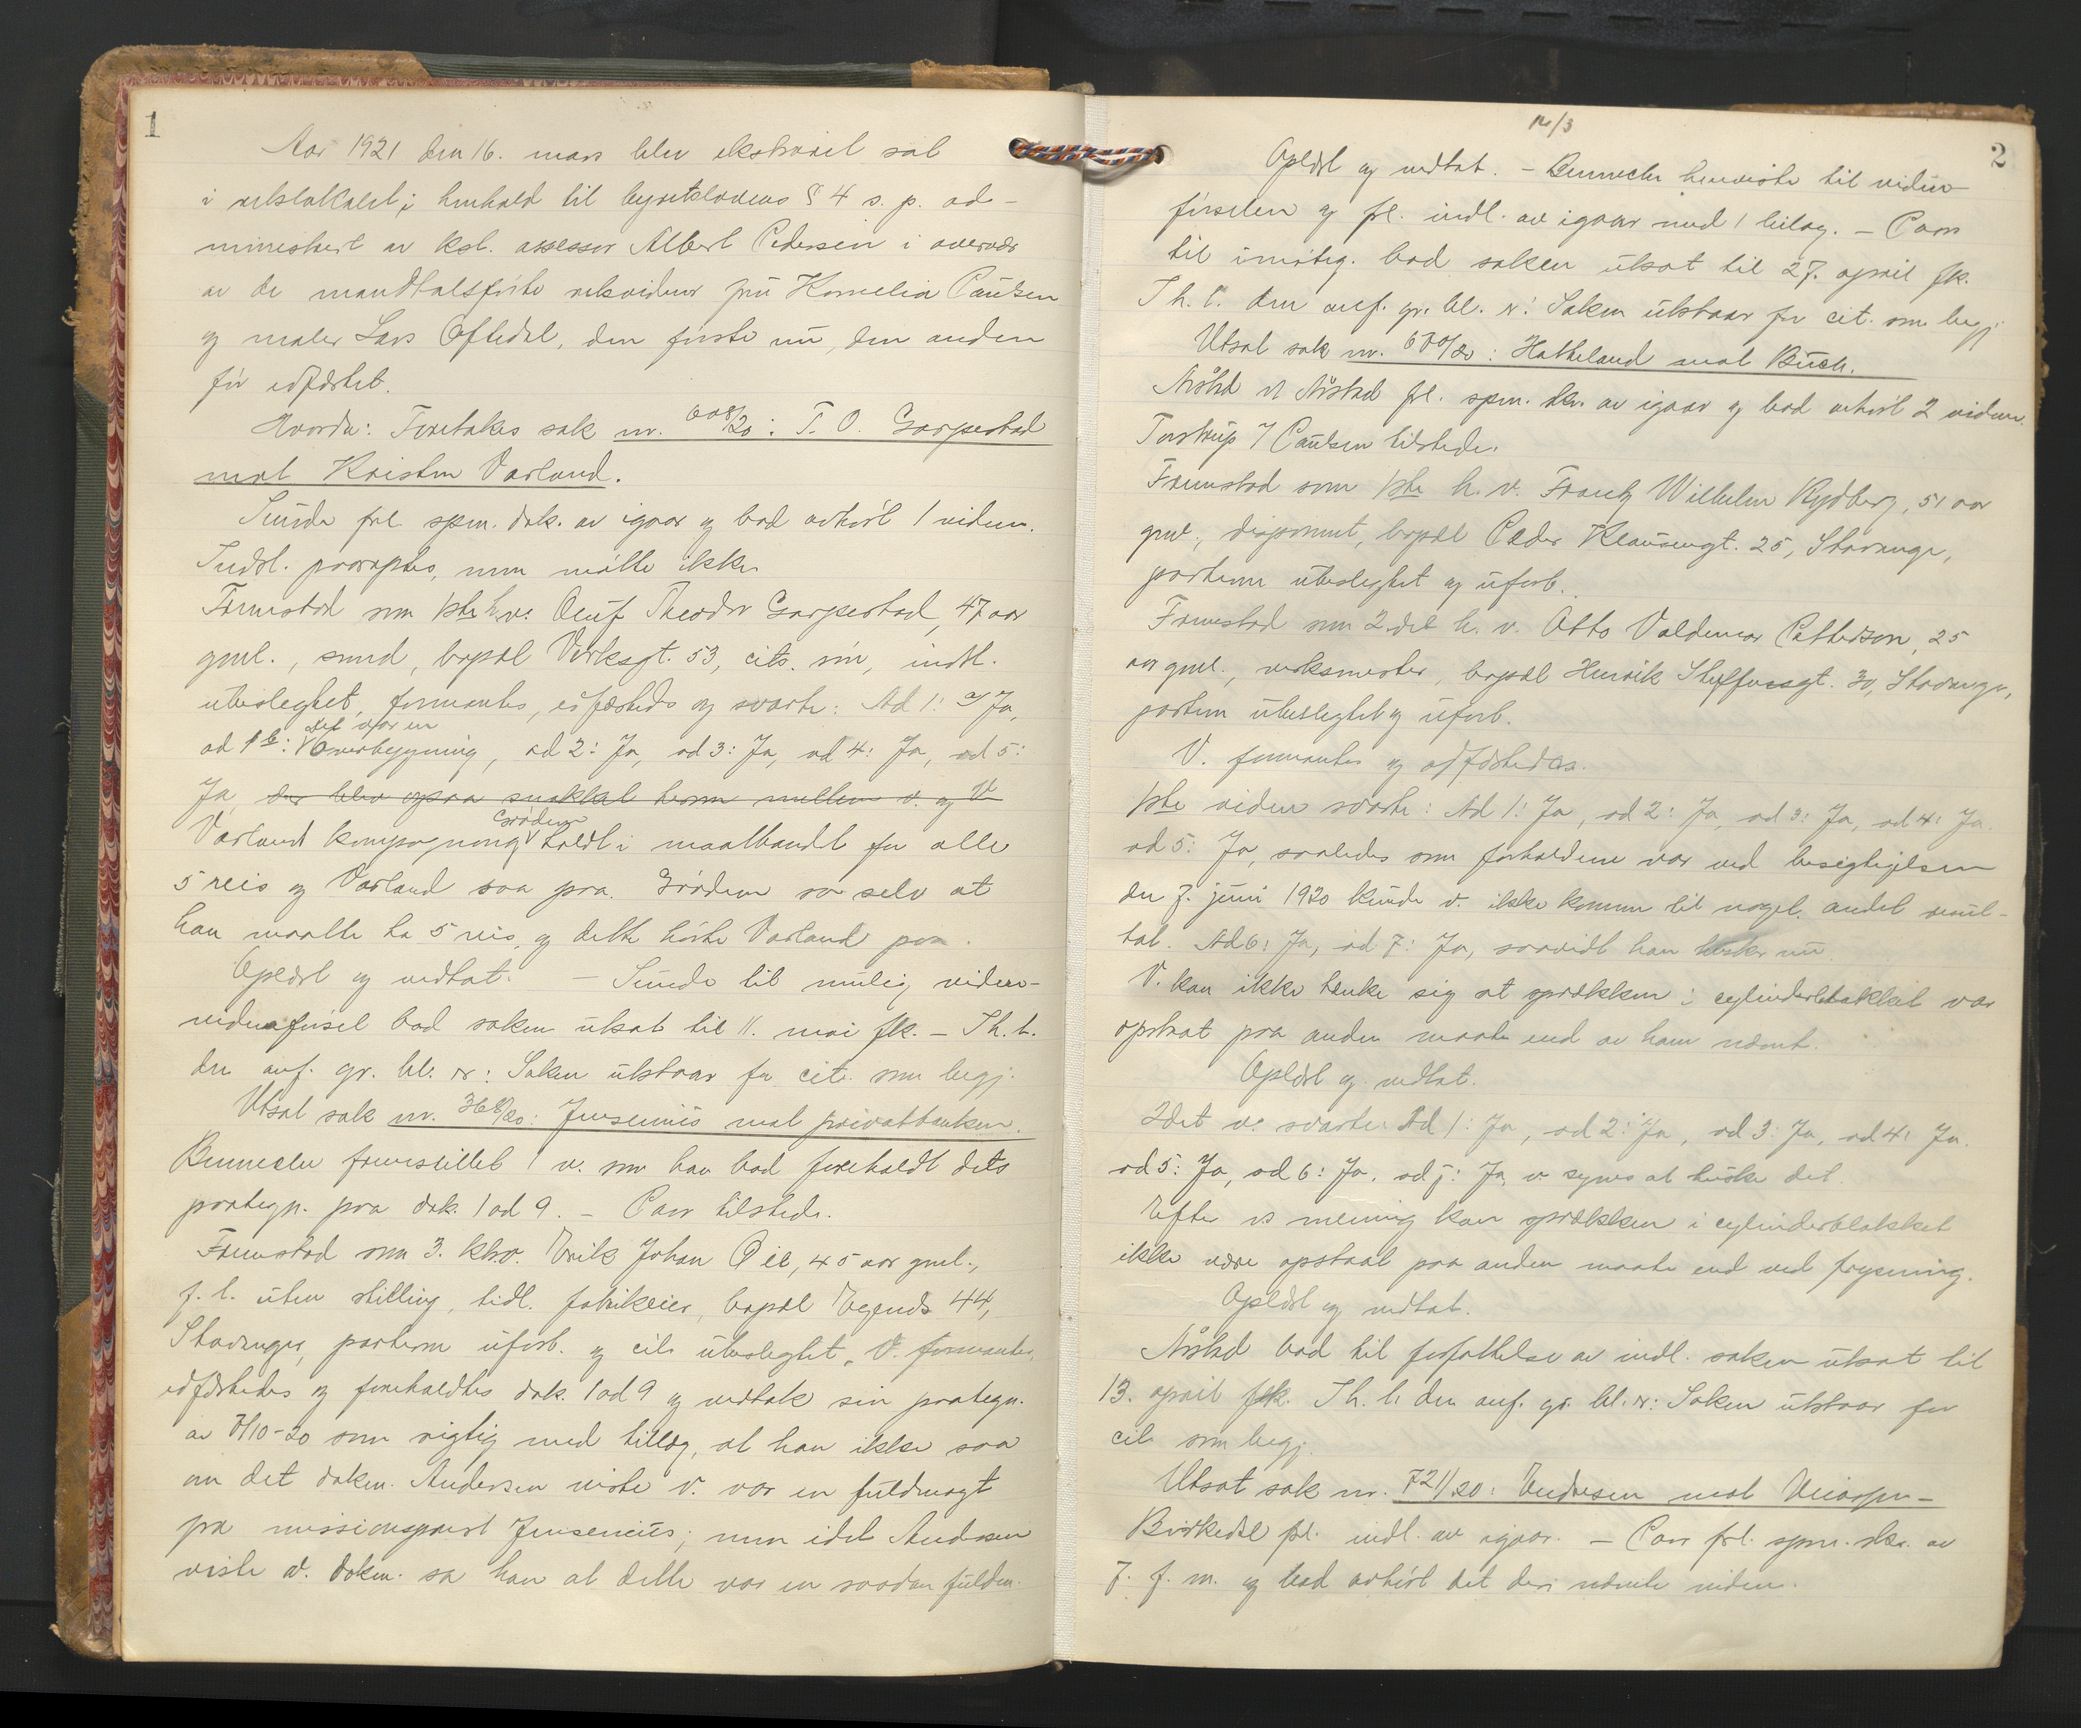 1
Aar 1921 den 16. mars blev ekstraret sat
i retslokalet i henhold til byretslovens § 4 s. p. ad-
ministrert av kst. assessor Albert Pedersen i overvær
av de mandtalsførte retsvidner fru Kornelia Paulsen
og maler Lars Oftedal, den første nu, den anden
før edfæstet.
Hvorda: Foretakes sak nr. 608/20: T. O. Garpestad
mot Kristen Varland.
Sunde frl. spm. dok. av igaar og bad avhørt 1 vidne.
Indst. paaraptes, men møtte ikke.
Fremstod som 1ste h. v. Oluf Theodor Garpestad, 47 aar
gml., smed, bopæl Verksgt. 53, cits. søn, indst.
ubeslegtet, formantes, edfæstedes og svarte: Ad 1: a) Ja,
ad 1 b: det var en overbygning, ad 2: Ja, ad 3: Ja, ad 4: Ja, ad 5:
Ja, der blev ogsaa snakket herom mellem v. og V
Varlands kompagnong Grødem holdt i maatbandt for alle
5 reis og Varland saa paa. Grødem sa selv at
han maatte ta 5 reis, og dette hørte Varland paa.
Oplæst og vedtat. — Sunde til mulig videre-
vidneførsel bad saken utsat til 11. mai fk. — Th. t.
den anf. gr. bl. r: Saken utstaar for cit. som begj.
Utsat sak nr. 368/20: Jensenius mot privatbanken.
Bennecke fremstillet 1 v. som han bad foreholdt dets
paategn. paa dok. 1 ad 9. — Carr tilstede.
Fremstod som 3. h.v. Erik Johan Qile, 45 aar gml.,
f. t. uten stilling, tidl. fabrikeier, bopæl Egends 44,
Stavanger, parterne uforb. og cits ubeslegtet. V. formantes,
edfæstedes og foreholdtes dok. 1 ad 9 og vedtok sin paategn.
av 7/10-20 som rigtig med tillæg, at han ikke saa
om det dokm. Andersen viste v. var en fuldmagt
fra missionsprest Jensenius; men idet Andersen
viste v. dokm. sa han at dette var en saadan fuldm.
16/3
2
Oplæst og vedtat. — Bennecke henviste til vidne-
førselen og frl. indl. av igaar med 1 bilag. — Carr
til imøteg. bad saken utsat til 27. april fk.
Th. t. den anf. gr. bl. r: Saken utstaar for cit. som begj.
Utsat sak nr. 670/20: Hatteland mot Buch.
Aarstad v/ Aarstad frl. spm. skr. av igaar og bad avhørt 2 vidner.
Torstrup v/ Paulsen tilstede.
Fremstod som 1ste h. v. Frantz Wilhelm Rydberg, 51 aar
gml., disponent, bopæl Peder Klausensgt. 25, Stavanger,
parterne ubeslegtet og uforb.
Fremstod som 2. det h. v. Otto Valdemar Petterson, 25
aar gml., verksmester, bopæl Henrik Steffensgt. 30, Stavanger,
partern ubeslegtet og uforb.
V. formantes og edfæstedes.
1ste vidne svarte: Ad 1: Ja, ad 2: Ja, ad 3: Ja, ad 4: Ja.
ad 5: Ja, saaledes som forholdene var ved besigtigelsen
den 7. juni 1920 kunde v. ikke komme til noget andet resul-
tat. Ad 6: Ja, ad 7: Ja, saavidt han husker nu.
V. kan ikke tænke sig at sprækken i cylinderblokket var
opstaat paa anden maate end av ham nævnt.
Oplæst og vedtat.
2det v. svarte: Ad 1: Ja, ad 2: Ja, ad 3: Ja, ad 4: Ja.
ad 5: Ja, ad 6: Ja, ad 7: Ja, v. synes at huske det.
Efter vs mening kan sprækken i cylinderblokket
ikke være opstaat paa anden maate end ved frysning.
Oplæst og vedtat.
Aarstad bad til forfattelse av indl. saken utsat til
13. april fk. Th. t. den anf. gr. bl. r: Saken utstaar for
cit. som begj.
Utsat sak nr. 721/20: Endresen mot
Birkedal frl. indl. av igaar. — Carr frl. spm. skr. av
7. f. m. og bad avhørt det deri nævnte vidne.